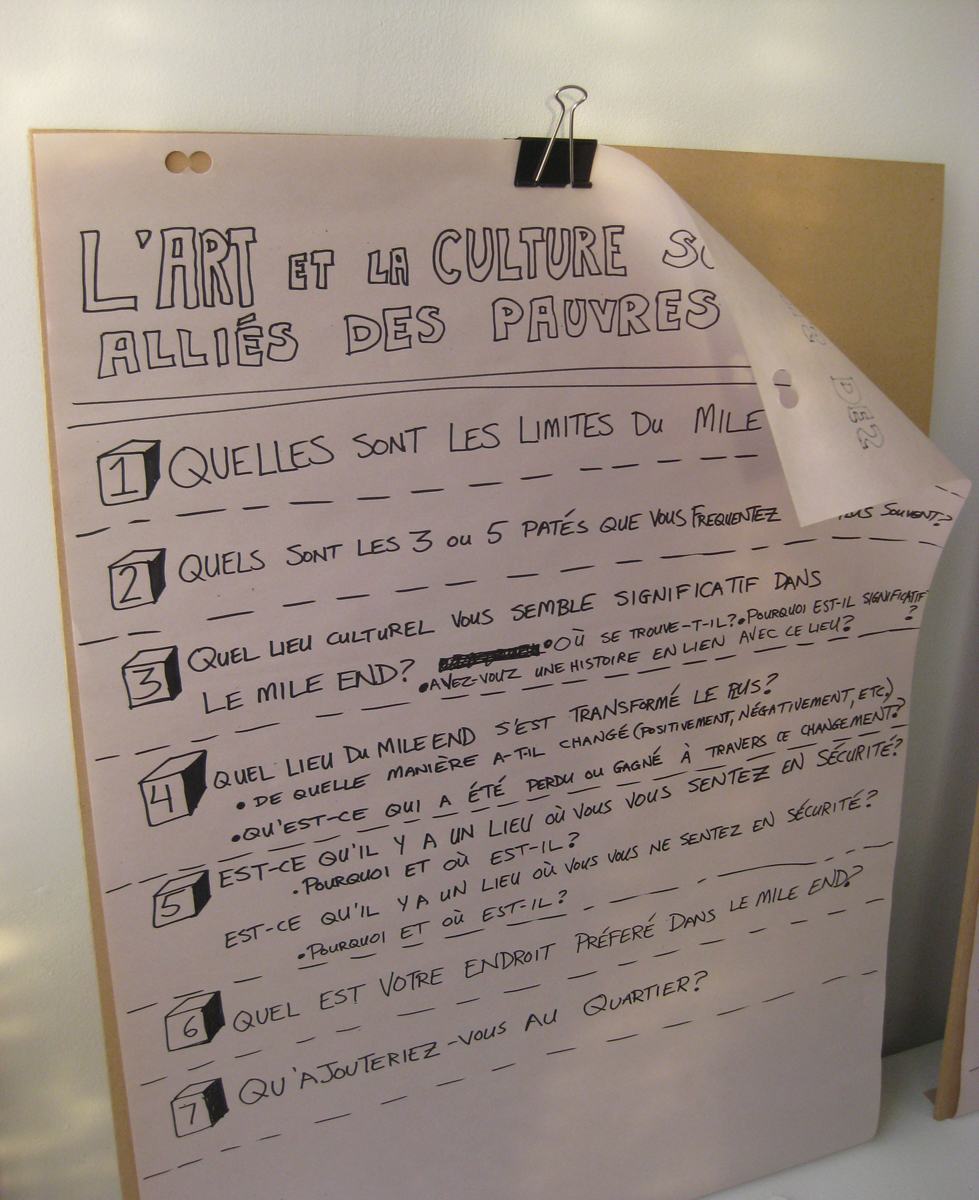 L'ART ET LA CULTURE
ALLIÉS DES PAUVRES
1 QUELLES SONT LES LIMITES DU MILE
2 QUELS SONT LES 3 OU 5 PATÉS QUE VOUS FREQUENTEZ SOUVENT?
3 QUEL LIEU CULTUREL VOUS SEMBLE SIGNIFICATIF DANS
LE MILE END? •OÙ SE TROUVE-T-IL? •POURQUOI EST-IL SIGNIFICATIF?
•AVEZ-VOUZ UNE HISTOIRE EN LIEN AVEC CE LIEU?
4 QUEL LIEU DU MILE END S'EST TRANSFORMÉ LE PLUS?
•DE QUELLE MANIÈRE A-T-IL CHANGÉ (POSITIVEMENT, NÉGATIVEMENT, ETC.)
•QU'EST-CE QUI A ÉTÉ PERDU OU GAGNÉ À TRAVERS CE CHANGEMENT?
5 EST-CE QU'IL Y A UN LIEU OÙ VOUS VOUS SENTEZ EN SÉCURITÉ?
•POURQUOI ET OÙ EST-IL?
EST-CE QU'IL Y A UN LIEU OÙ VOUS VOUS NE SENTEZ EN SÉCURITÉ?
•POURQUOI ET OÙ EST-IL?
6 QUEL EST VOTRE ENDROIT PRÉFERÉ DANS LE MILE END?
7 QU'AJOUTERIEZ-VOUS AU QUARTIER?
DES